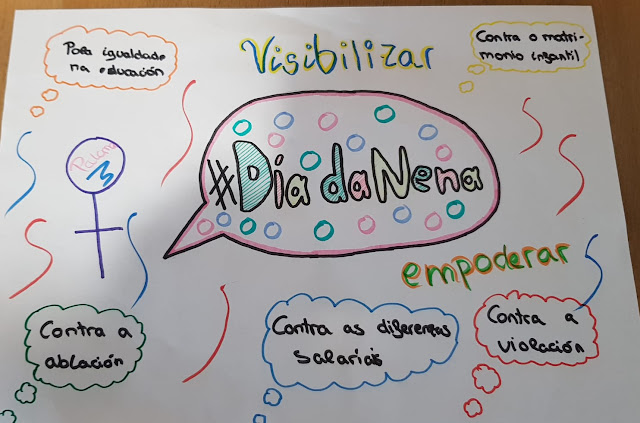 Visibilizar
Pola igualdade
na educación
Contra o matri-
monio infantil
#Día da Nena
empoderar
Contra a
ablación
Contra as diferenzas
salariais
Contra a
violación